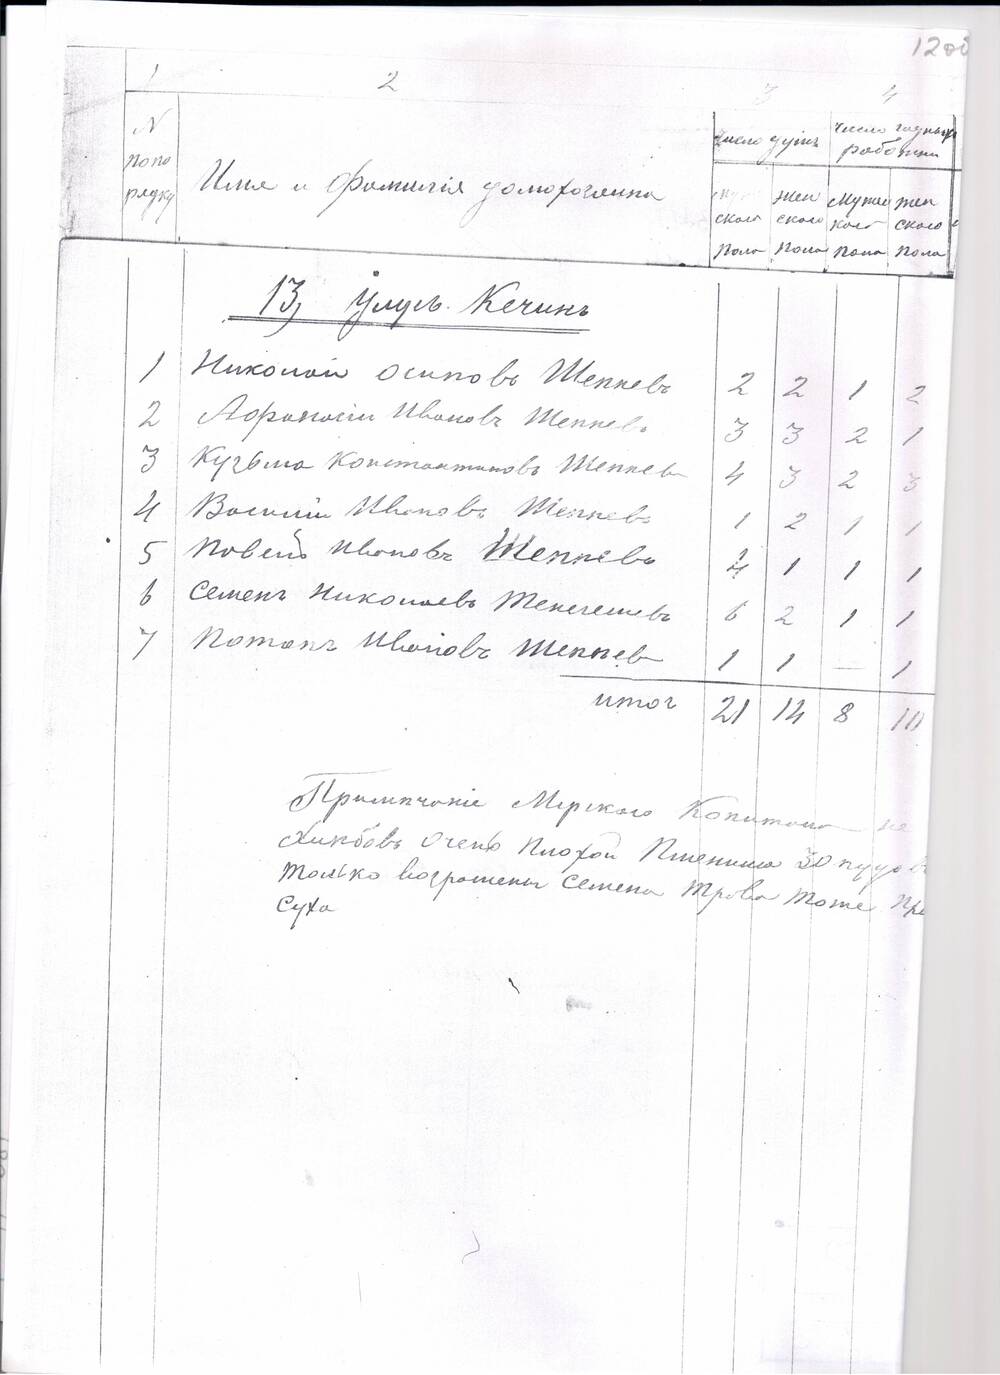 12об
1 2 3 4
N по по рядку
Имя и фамилія домохозяина
число душъ
число годныхъ работни
ского пола
жен ского пола
мужск кого пола
жен ского пола
13, Улусъ Кечинъ
1 Николай Осиповъ Шепневъ 2 2 1 2
2 Афанасіи Ивановъ Шепневъ 3 3 2 1
3 Кузьма Константиновъ Шепнев 4 3 2 3
4 Василіи Ивановъ Шепневъ 1 2 1 1
5 Павелъ Ивановъ Шепневъ 4 1 1 1
6 Семенъ Николаевъ Тенегешевъ 6 2 1 1
7 Потапъ Ивановъ Шепнев 1 1 — 1
итог 21 14 8 10
Примѣчаніе Мірского Капитала не
Хлебовъ очень плохой Пшеница 30 пудов
только возращены Семена трова тоже пре
суха